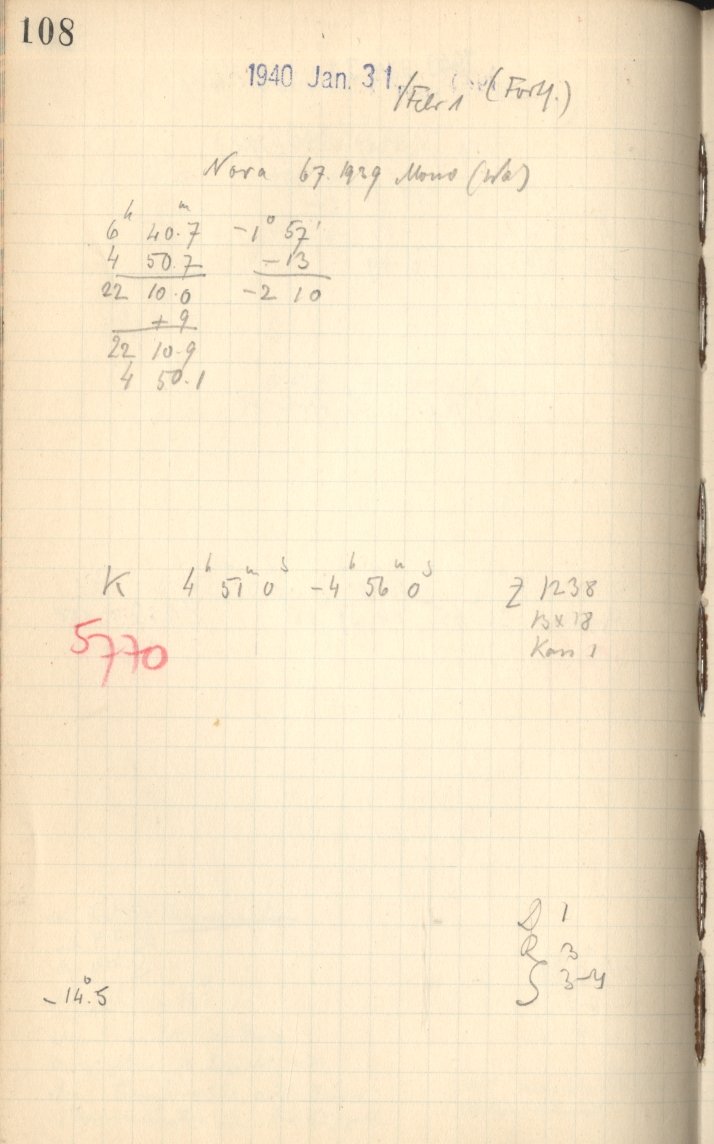 108
1940 Jan. 31./Febr 1 (Forts.)
Nova 67.1939 Mono (Wa)
6h 40m.7 -1° 57'
4 50.7 -13
22 10.0 -2 10
+9
22 10.9
4 50.1
K 4h 51m 0s -4h 56m 0s Z 1238
13x18
Kass 1
5770
D 1
R 3
S 3-4
-14°.5